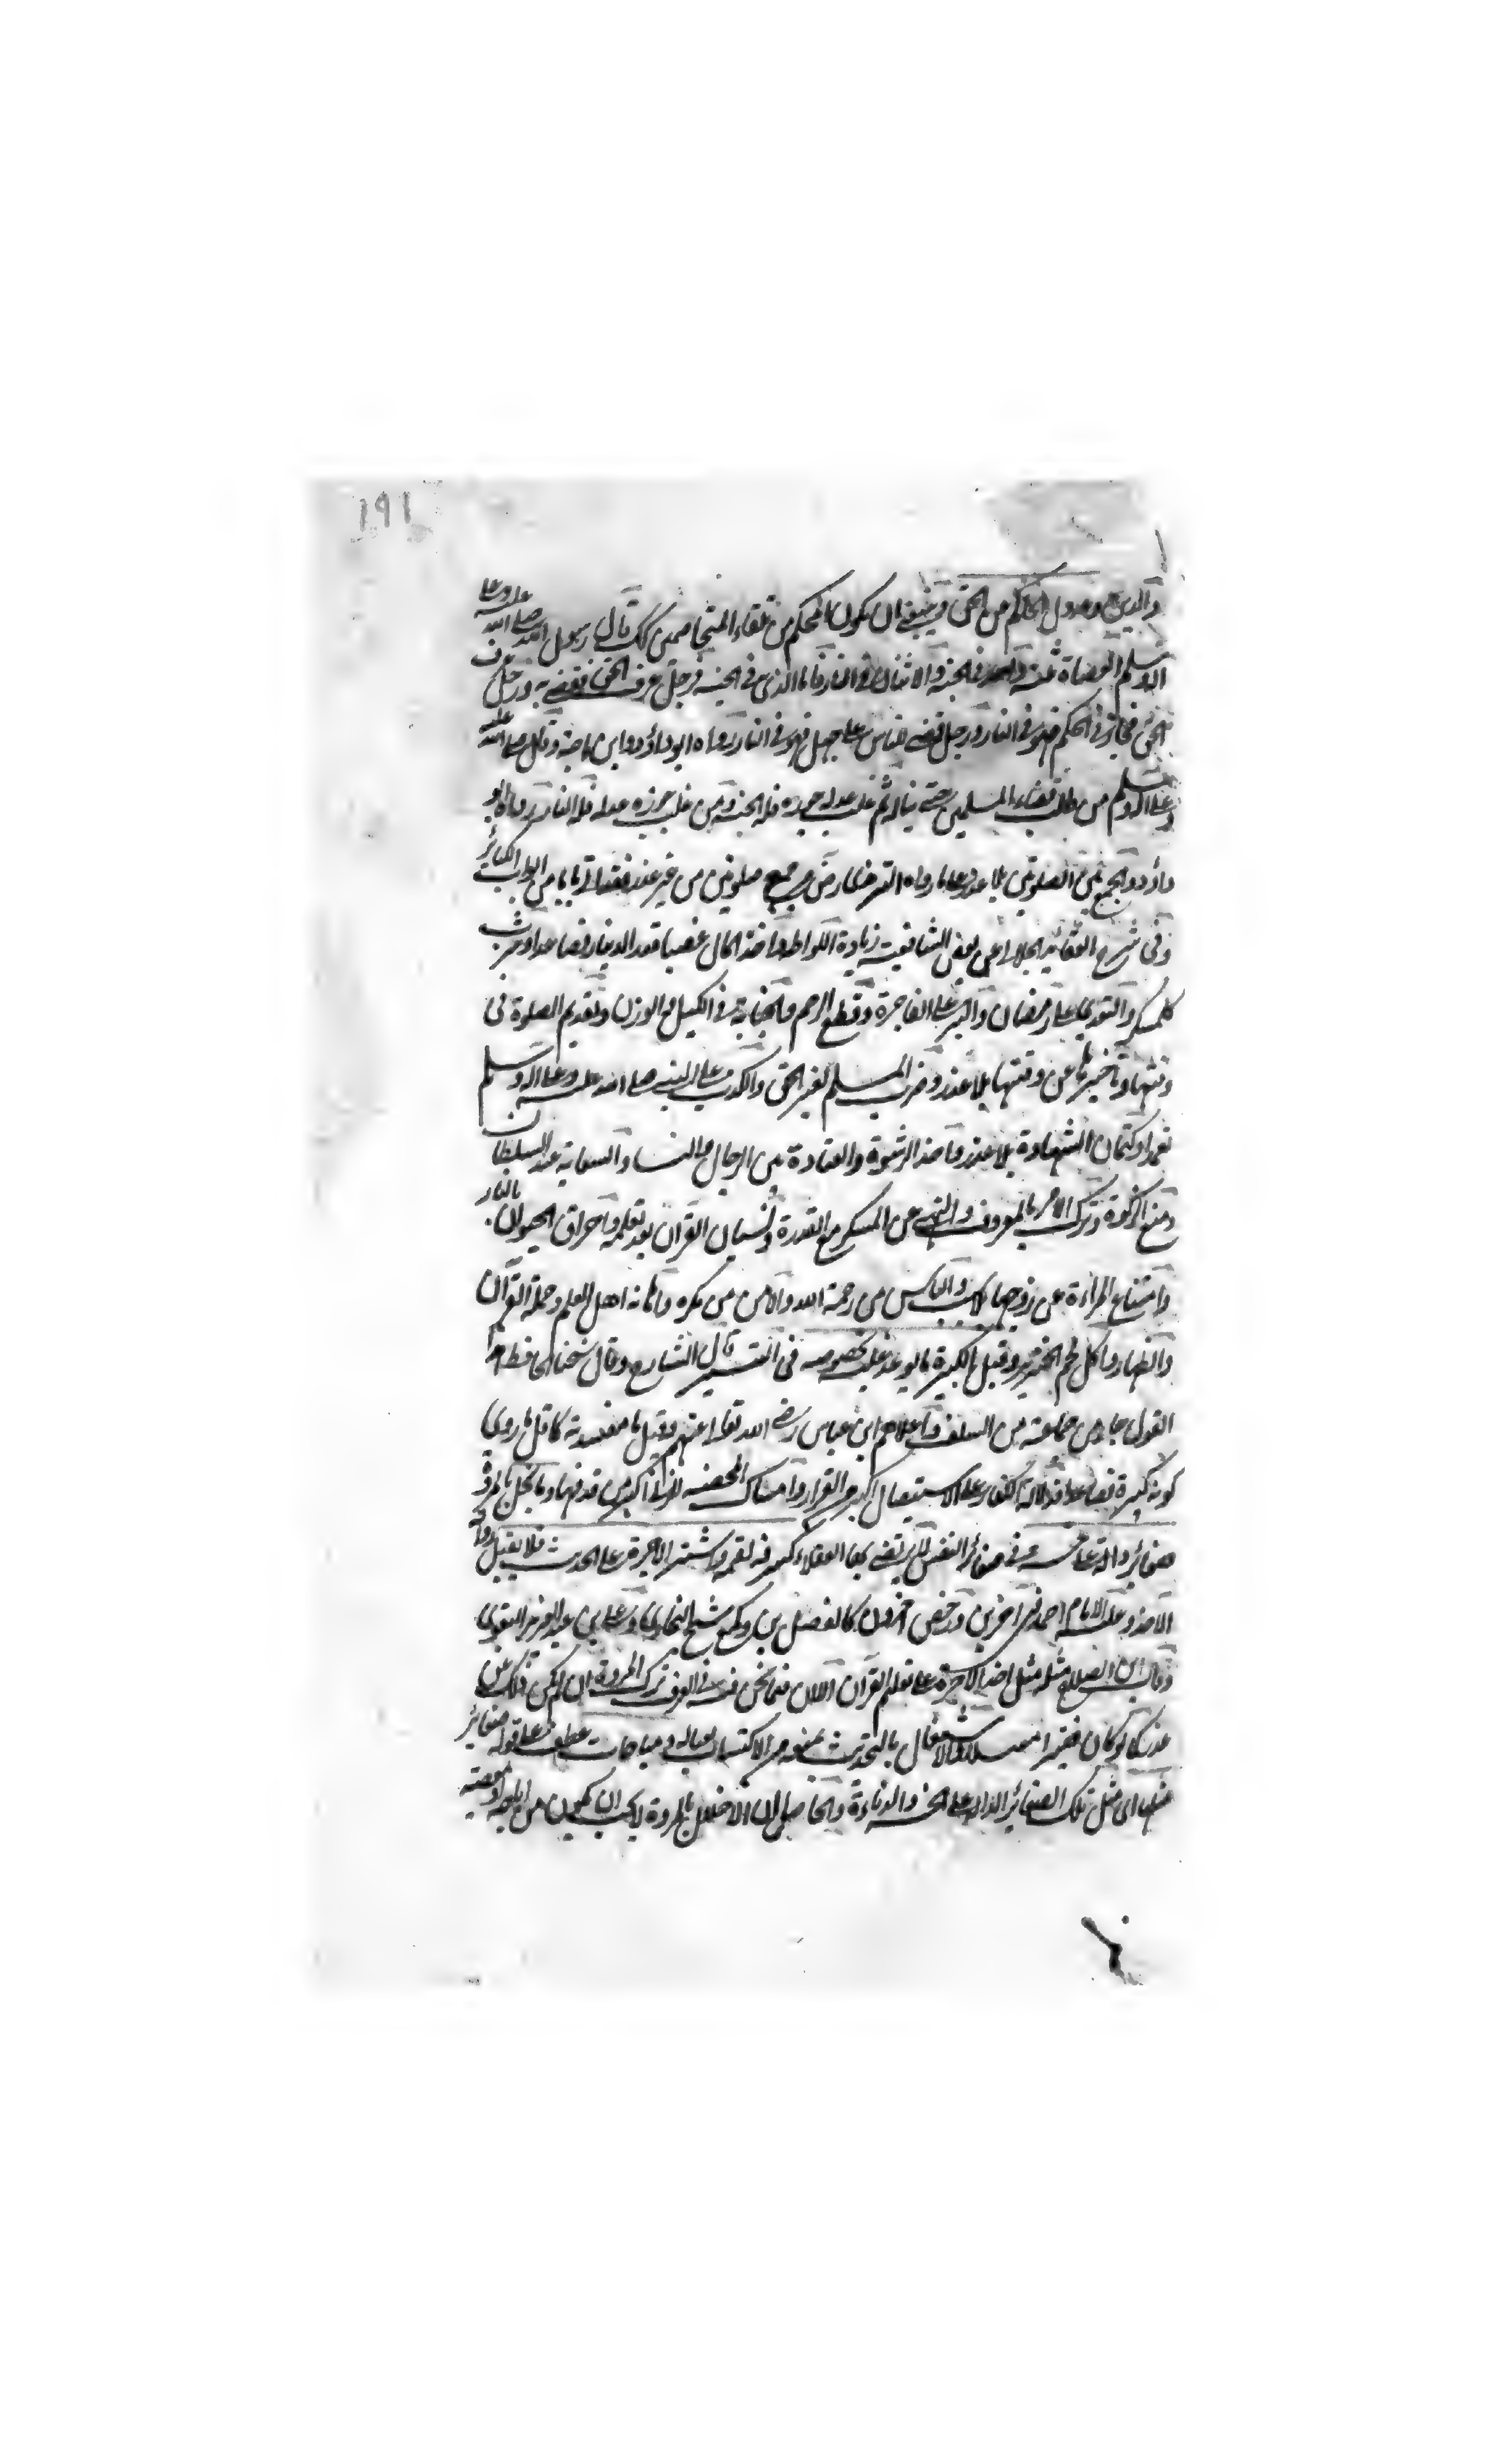 ١٩١
والدين وعدول الحاكم من الحق وينبغي ان يكون المحكم من تلقاء المتخاصمين كك قال رسول الله صلى الله عليه وعلى
اله وسلم القضاة ثلثة واحد في الجنة والاثنان في النار فاما الذي في الجنة فرجل عرف الحق فقضى به ورجل عرف
الحق فجار في الحكم فهو في النار ورجل قضى للناس على جهل فهو في النار رواه ابو داؤد وابن ماجة وقال صلى الله عليه
وعلى اله وسلم من طلب قضاء المسلمين حتى يناله ثم غلب عدله جوره فله الجنة ومن غلب جوره عدله فله النار رواه ابو
داؤد والجمع بين الصلوتين بلا عذر وعلى ما رواه الترمذي من جمع صلوتين من غير عذر فقد اتى بابا من ابواب الكبائر
وفي شرح العقائد الجلالي عن بعض الشافعية زيادة اللواطة واخذ المال غصبا قدر الدينار فصاعدا وشرب
كل مسكر والتعدي على رمضان واليمين الفاجرة وقطع الرحم والخيانة في الكيل والوزن وتقديم الصلوة في
وقتها وتأخيرها عن وقتها بلا عذر وضرب المسلم لغير الحق والكذب على النبي صلى الله عليه وعلى اله وسلم
تعمدا وكتمان الشهادة بلا عذر واخذ الرشوة والقيادة بين الرجال والنساء والسعاية عند السلطان
ومنع الزكوة وترك الامر بالمعروف والنهي عن المنكر مع القدرة ونسيان القرآن بعد تعلمه واحراق الحيوان بالنار
وامتناع المرأة عن زوجها بلا سبب والياس من رحمة الله والامن من مكره واهانة اهل العلم وحملة القرآن
والظهار واكل لحم الخنزير وقيل الكبيرة ما يوعد عليه بخصوصه في التيسير قال الشارح وقال شيخنا الحافظ هذا
القول جاء عن جماعة من السلف واعلاهم ابن عباس رضي الله تعالى عنهم وقيل ما مفسدته كاقل ما روي
كونه كبيرة فصاعدا فدلالة الكفار على الاستيصال اكبر من الفرار وامساك المحصنة للزنا اكبر من قذفها وما يخل بالمروة
صغائر دالة على خسة وفي صغائر النفس التي تقضي بها العقلاء كسرقة لقمة واشتراط الاجرة على الحديث فلا يقبل رواية
الاخذ وعليه الامام احمد في آخرين ورخص آخرون كالفضل بن دكين شيخ البخاري وعلي بن عبد العزيز البغوي
وقال ابن الصلاح مثله مثل اخذ الاجرة على تعليم القرآن الا ان فيما نحن فيه في العرف ترك المروة ان لم يكن ذلك عن
عذر كما لو كان فقيرا معيلا والاشتغال بالتحديث يمنعه من الاكتساب لعياله ومباحات عطف على قوله صغائر
مثلها اي مثل تلك الصغائر الدالة على الخسة والدناءة والحاصل ان الاخلال بالمروة لا يجب ان يكون من معصية